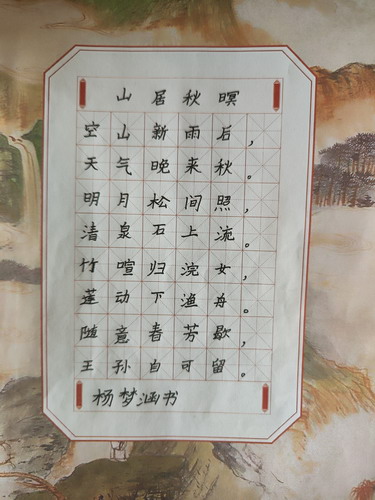 山居秋暝
空山新雨后，
天气晚来秋。
明月松间照，
清泉石上流。
竹喧归浣女，
莲动下渔舟。
随意春芳歇，
王孙自可留。
杨梦涵书